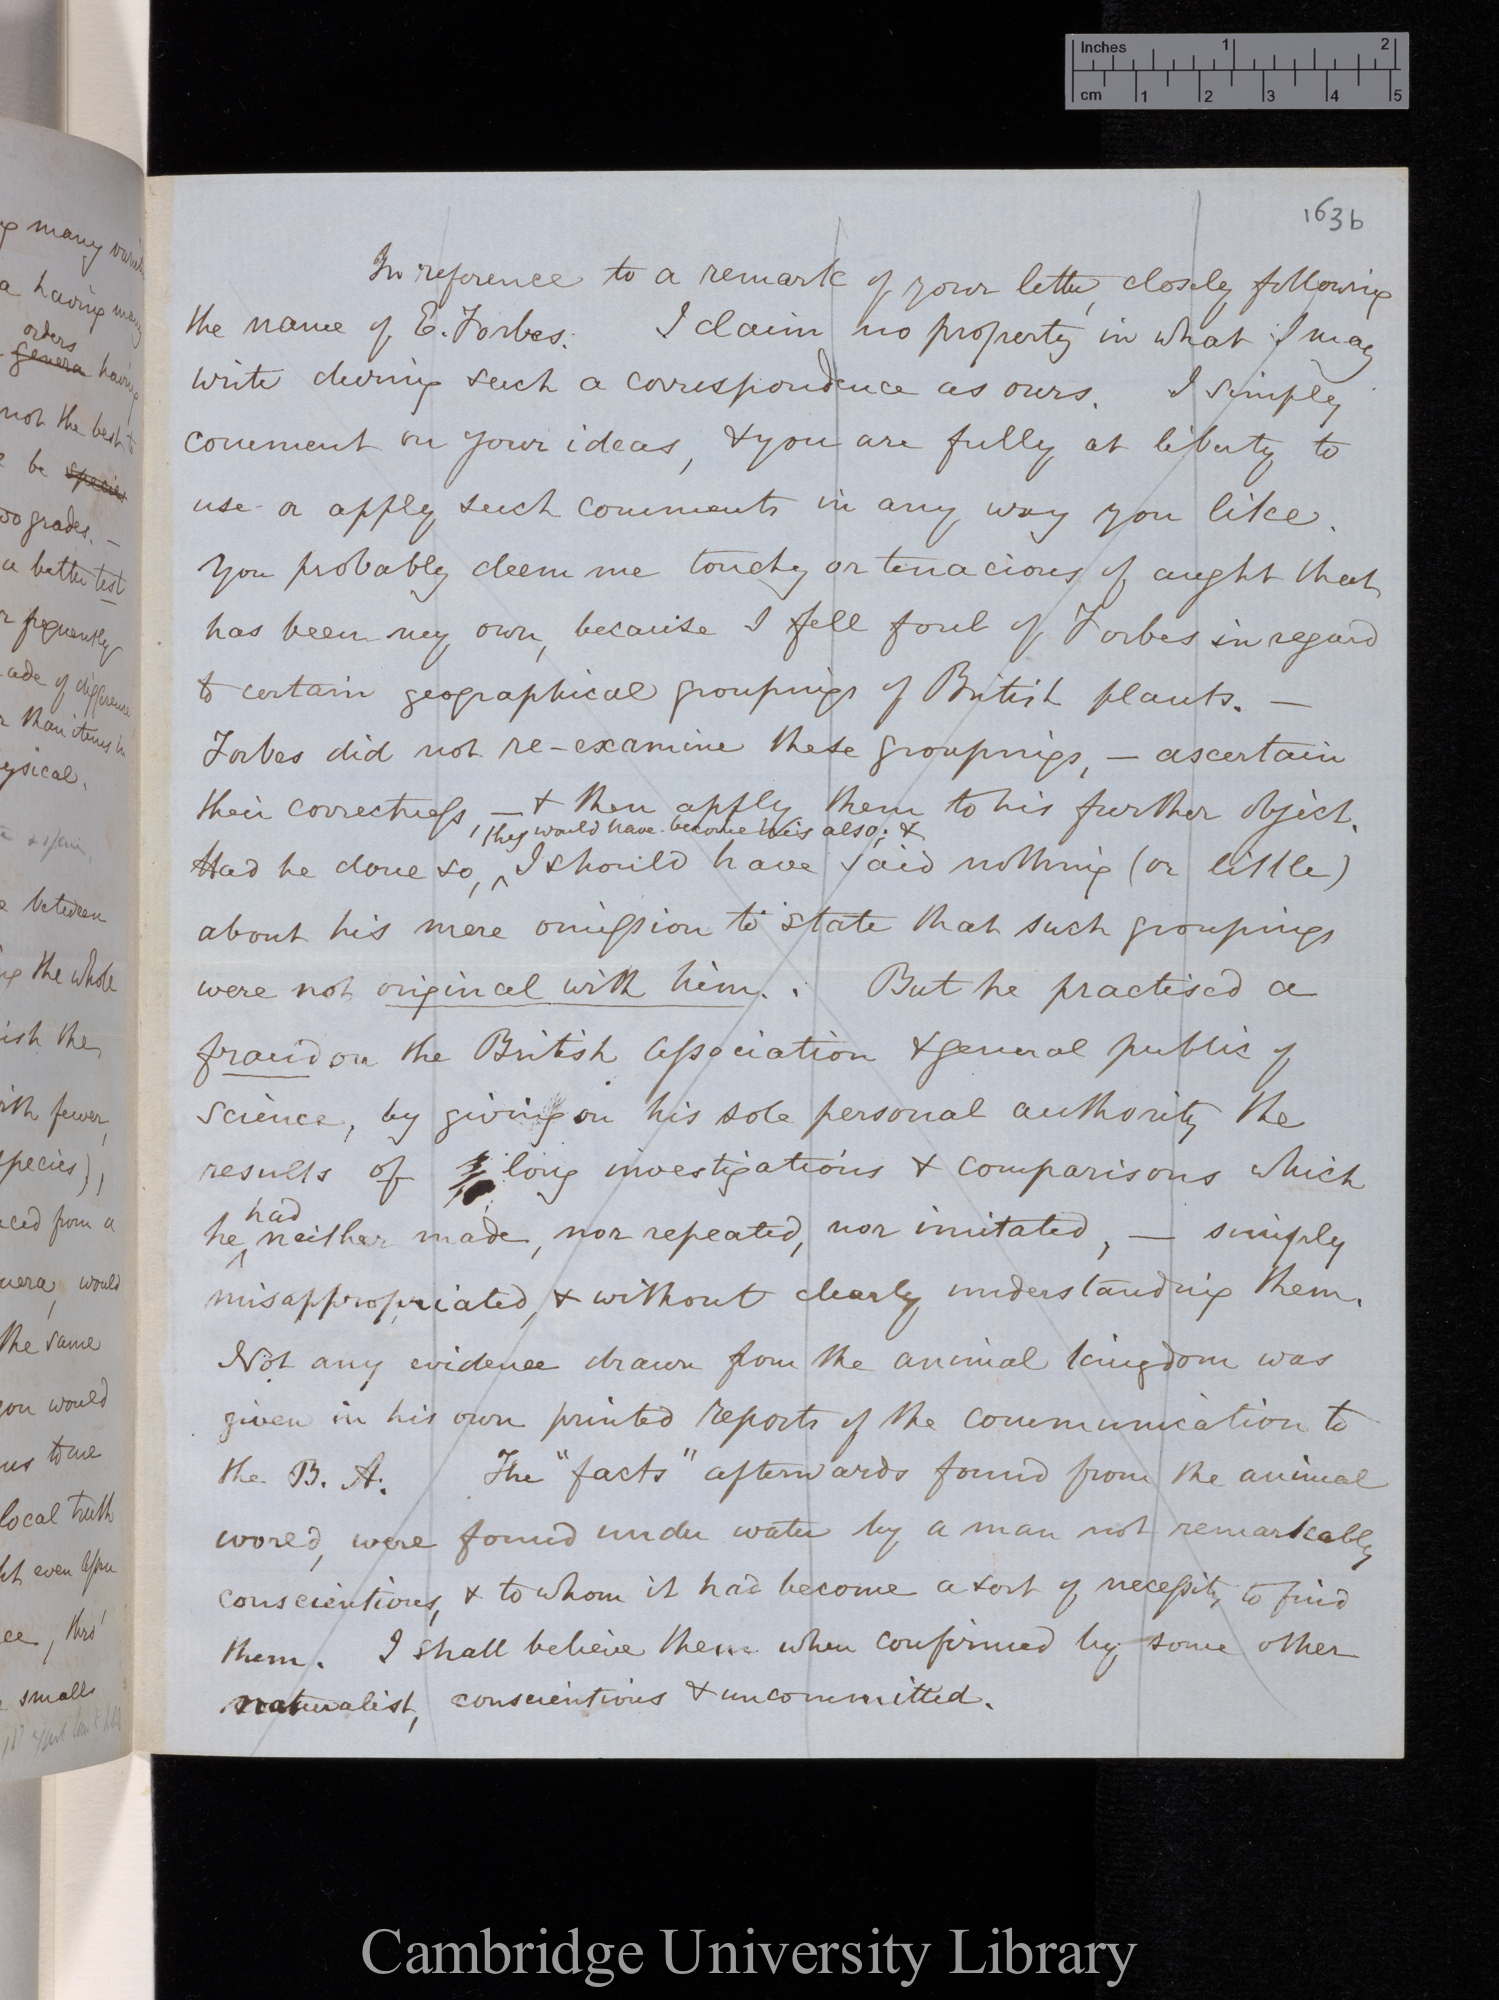 Inches 1 2
cm 1 2 3 4 5
163b
In reference to a remark of your letter, closely following
the name of E. Forbes. I claim no property in what I may
write during such a correspondence as ours. I simply
comment on your ideas, & you are fully at liberty to
use or apply such comments in any way you like.
You probably deem me touchy or tenacious of aught that
has been my own, because I fell foul of Forbes in regard
to certain geographical groupings of British plants. —
Forbes did not re-examine these groupings, — ascertain
their correctness, — & then apply them to his further object.
they would have become his also; &
Had he done so, ^ I should have said nothing (or little)
about his mere omission to state that such groupings
were not original with him. But he practised a
fraud on the British Association & general public of
science, by giving on his sole personal authority the
results of long investigations & comparisons which
had
he ^ neither made, nor repeated, nor imitated, — simply
misappropriated, & without clearly understanding them.
Not any evidence drawn from the animal kingdom was
given in his own printed reports of the communication to
the B. A. The "facts" afterwards found from the animal
world, were found under water by a man not remarkably
conscientious, & to whom it had become a sort of necessity to find
them. I shall believe them when confirmed by some other
naturalist, conscientious & uncommitted.
many
a having many
orders
genera having
not the best to
be species
two grades. —
a better test
frequently
ade of difference
than items in
ysical.
between
the whole
ish the
with fewer,
species),
ced from a
nera, would
the same
you would
us to me
local truth
ht even
ee, thro'
smalls
Cambridge University Library